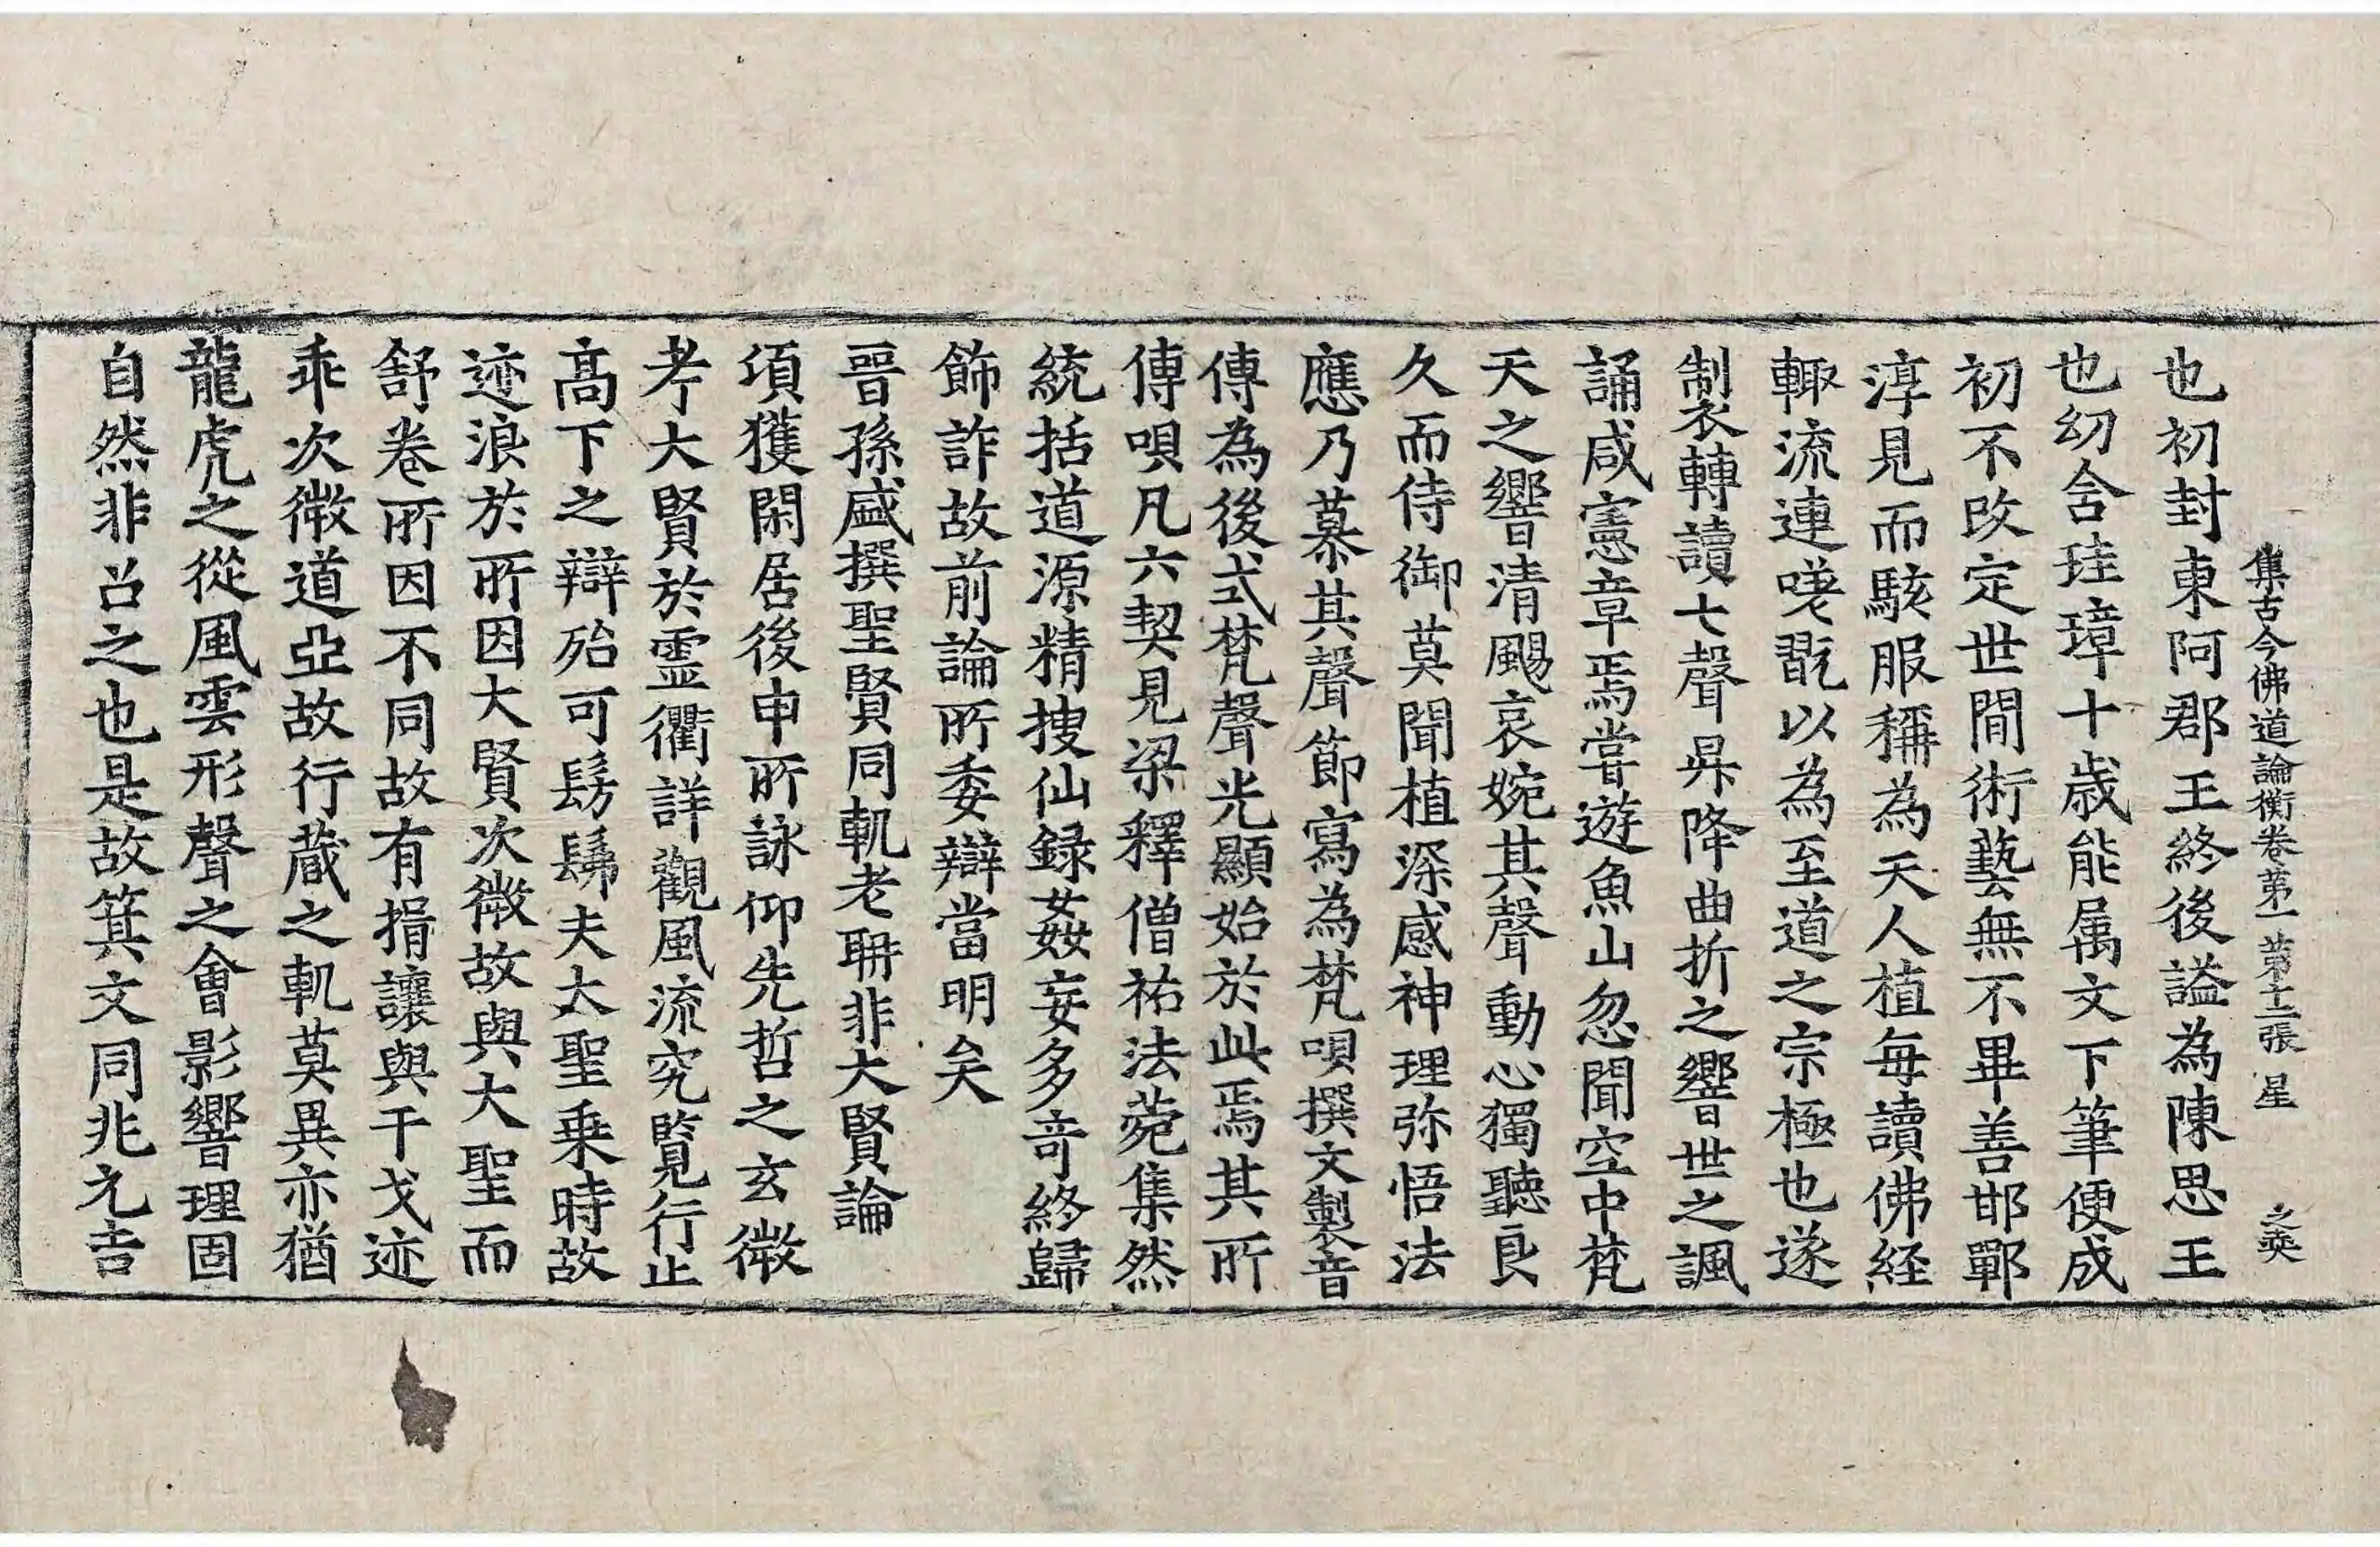 集古今佛道論衡卷第一 第十二張 星 之奕
也初封東阿郡王終後謚為陳思王
也幼含珪璋十歳能属文下筆便成
初不改定世間術藝無不畢善邯鄲
淳見而駭服稱為天人植每讀佛経
輙流連嗟翫以為至道之宗極也遂
制製轉讀七聲昇降曲折之響世之諷
誦咸憲章焉嘗遊魚山忽聞空中梵
天之響清颺哀婉其聲動心獨聽良
久而侍御莫聞植深感神理弥悟法
應乃慕其聲節寫為梵唄撰文製音
傳為後式梵聲光顯始於此焉其所
傳唄凡六契見梁釋僧祐法菀集然
統括道源精搜仙録姦妄多竒終歸
飾詐故前論所委辯當明矣
晉孫盛撰聖賢同軌老聃非大賢論
項獲閑居後申所詠仰先哲之玄微
考大賢於霊衢詳觀風流究覧行止
髙下之辯殆可髣髴夫大聖乗時故
迹浪於所因大賢次微故與大聖而
舒卷所因不同故有揖讓與干戈迹
乖次微道亞故行蔵之軌莫異亦猶
龍虎之從風雲形聲之會影響理固
自然非召之也是故箕文同兆元吉